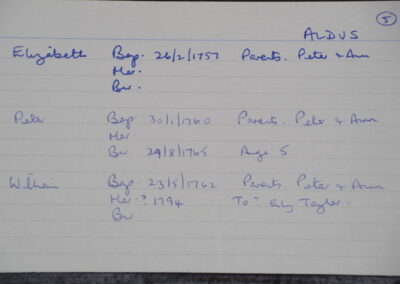 5
ALDUS
Elizabeth Bap. 26/2/1757 Parents. Peter & Ann
Mar.
Bur.
Peter Bap 30/1/1760 Parents. Peter & Ann
Mar
Bur 29/8/1765 Age 5
William Bap. 23/5/1762 Parents Peter & Ann
Mar ? 1794 To? Eliz Taylor.
Bur